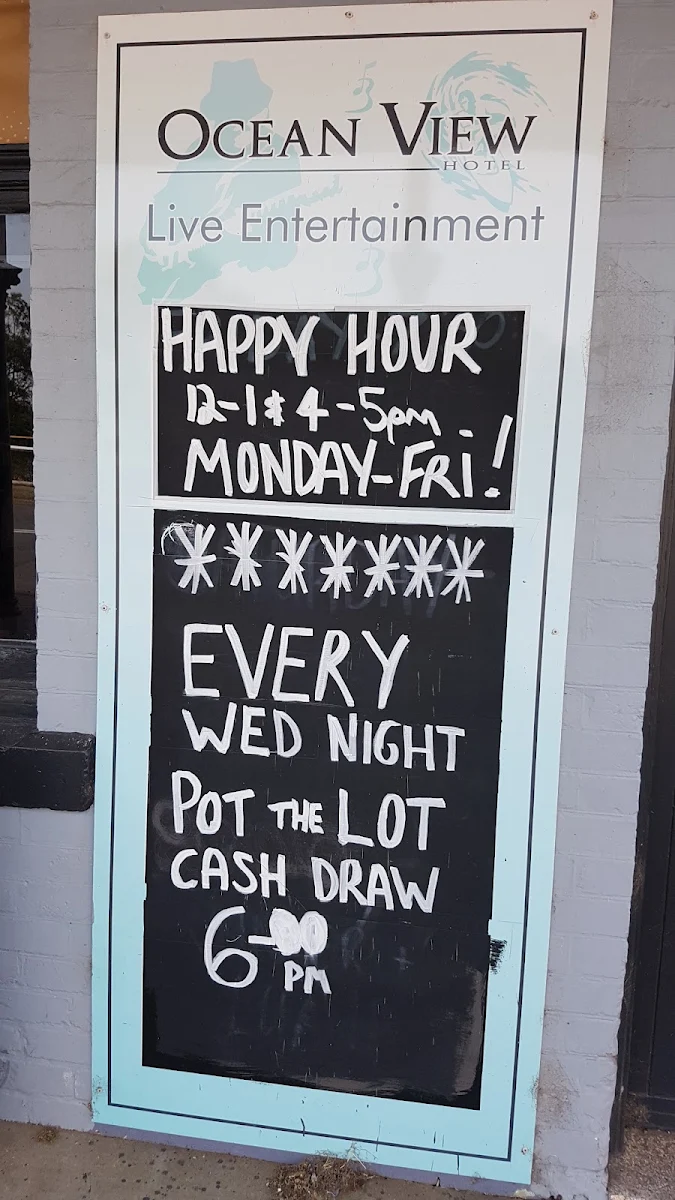 OCEAN VIEW
HOTEL
Live Entertainment
HAPPY HOUR
12-1 & 4-5pm
MONDAY-FRi!
*******
EVERY
WED NIGHT
POT THE LOT
CASH DRAW
6-00
PM